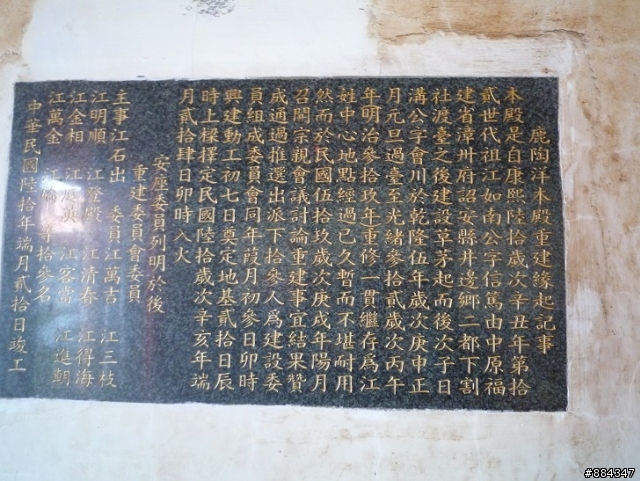 鹿陶洋本殿重建緣起記事
本殿是自康熙陸拾歲次辛丑年第拾
貳世代祖江如南公字信篤由中原福
建省漳州府詔安縣井邊鄉二都下割
社渡臺之後建設草茅起而後次子日
溝公字會川於乾隆伍年歲次庚申正
月元旦過臺至光緒參拾貳歲次丙午
年明治參拾玖年重修一貫繼存為江
姓中心地點經過已久暫而不堪耐用
然而於民國伍拾玖歲次庚戌年陽月
召開宗親會議討論重建事宜結果贊
成通過推選出派下拾參人為建設委
員組成委員會同年葭月初參日卯時
興建動工初七日奠定地基貳拾日辰
時上樑擇定民國陸拾歲次辛亥年端
月貳拾肆日卯時入火
安座委員列明於後
重建委員會委員
主事江石出 委員江萬吉 江三枝
江明順 江登殿 江清春 江得海
江金相 江 江客當 江進朝
江萬金 江 等拾參名
中華民國陸拾年端月貳拾日竣工
#884347